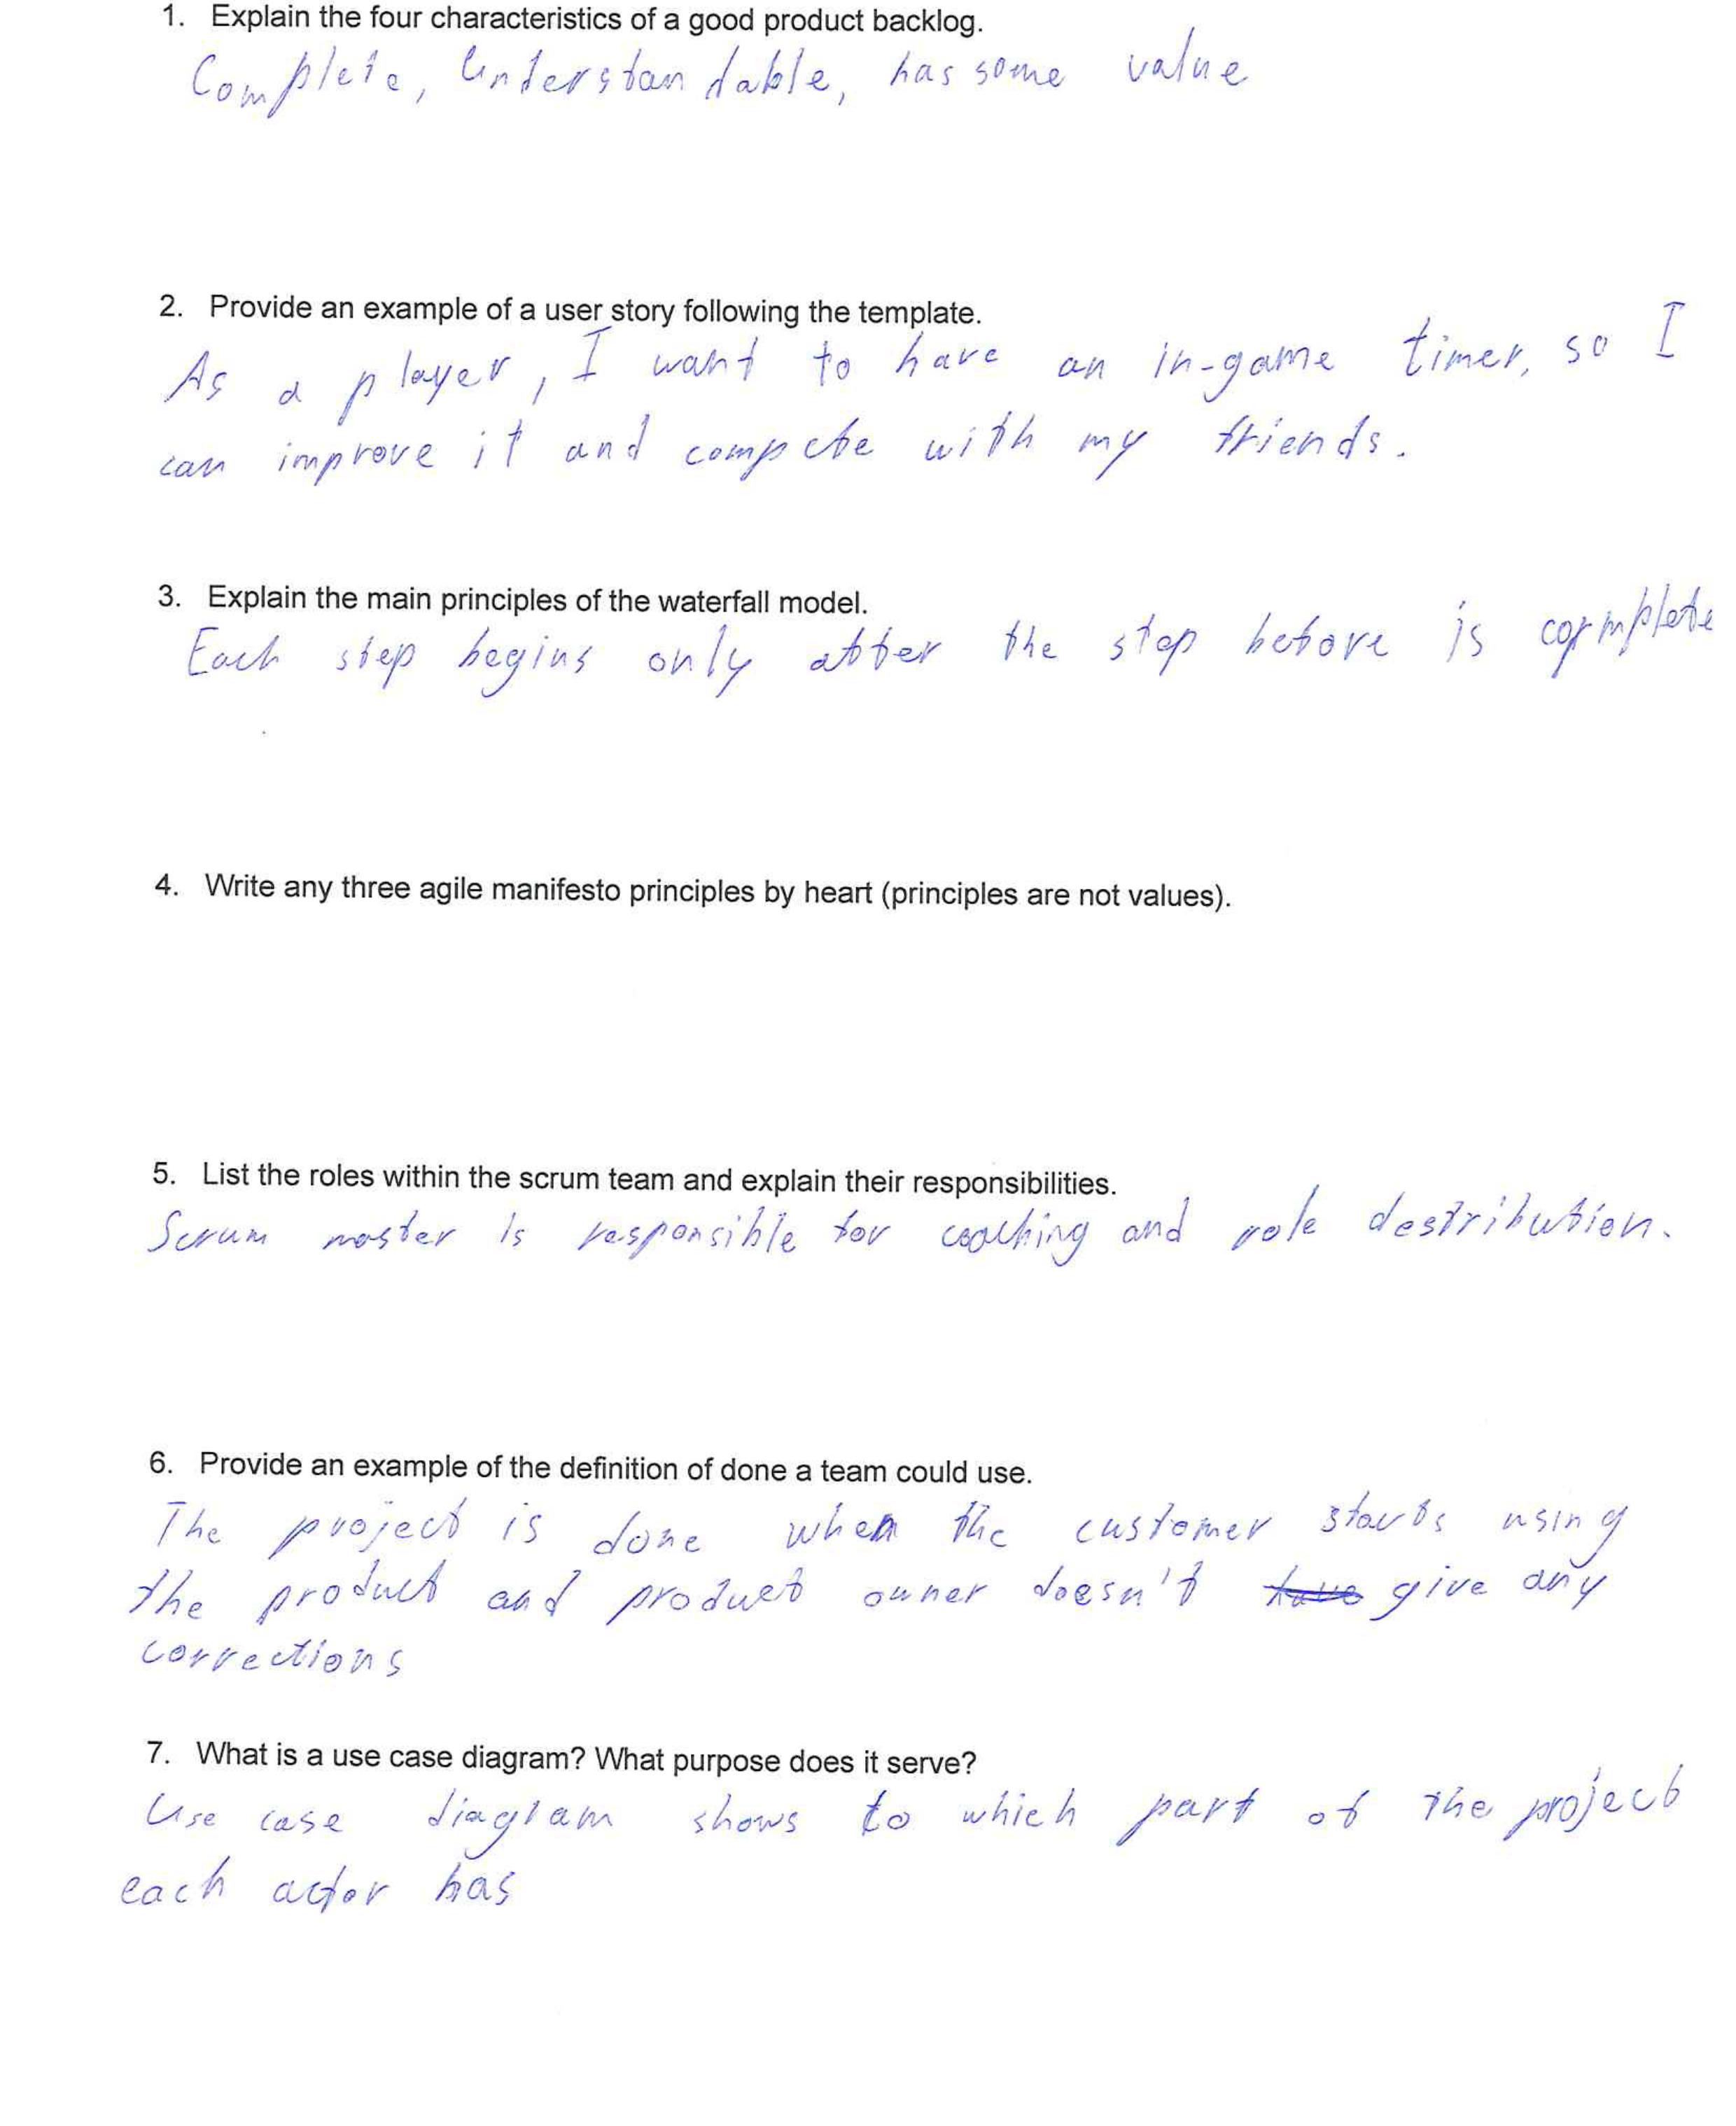 1. Explain the four characteristics of a good product backlog.
Complete, Understandable, has some value
2. Provide an example of a user story following the template.
As a player, I want to have an in-game timer, so I
can improve it and compete with my friends.
3. Explain the main principles of the waterfall model.
Each step begins only after the step before is complete
4. Write any three agile manifesto principles by heart (principles are not values).
5. List the roles within the scrum team and explain their responsibilities.
Scrum master is responsible for coaching and role destribution.
6. Provide an example of the definition of done a team could use.
The project is done when the customer starts using
the product and product owner doesn't have give any
corrections
7. What is a use case diagram? What purpose does it serve?
Use case diagram shows to which part of the project
each actor has